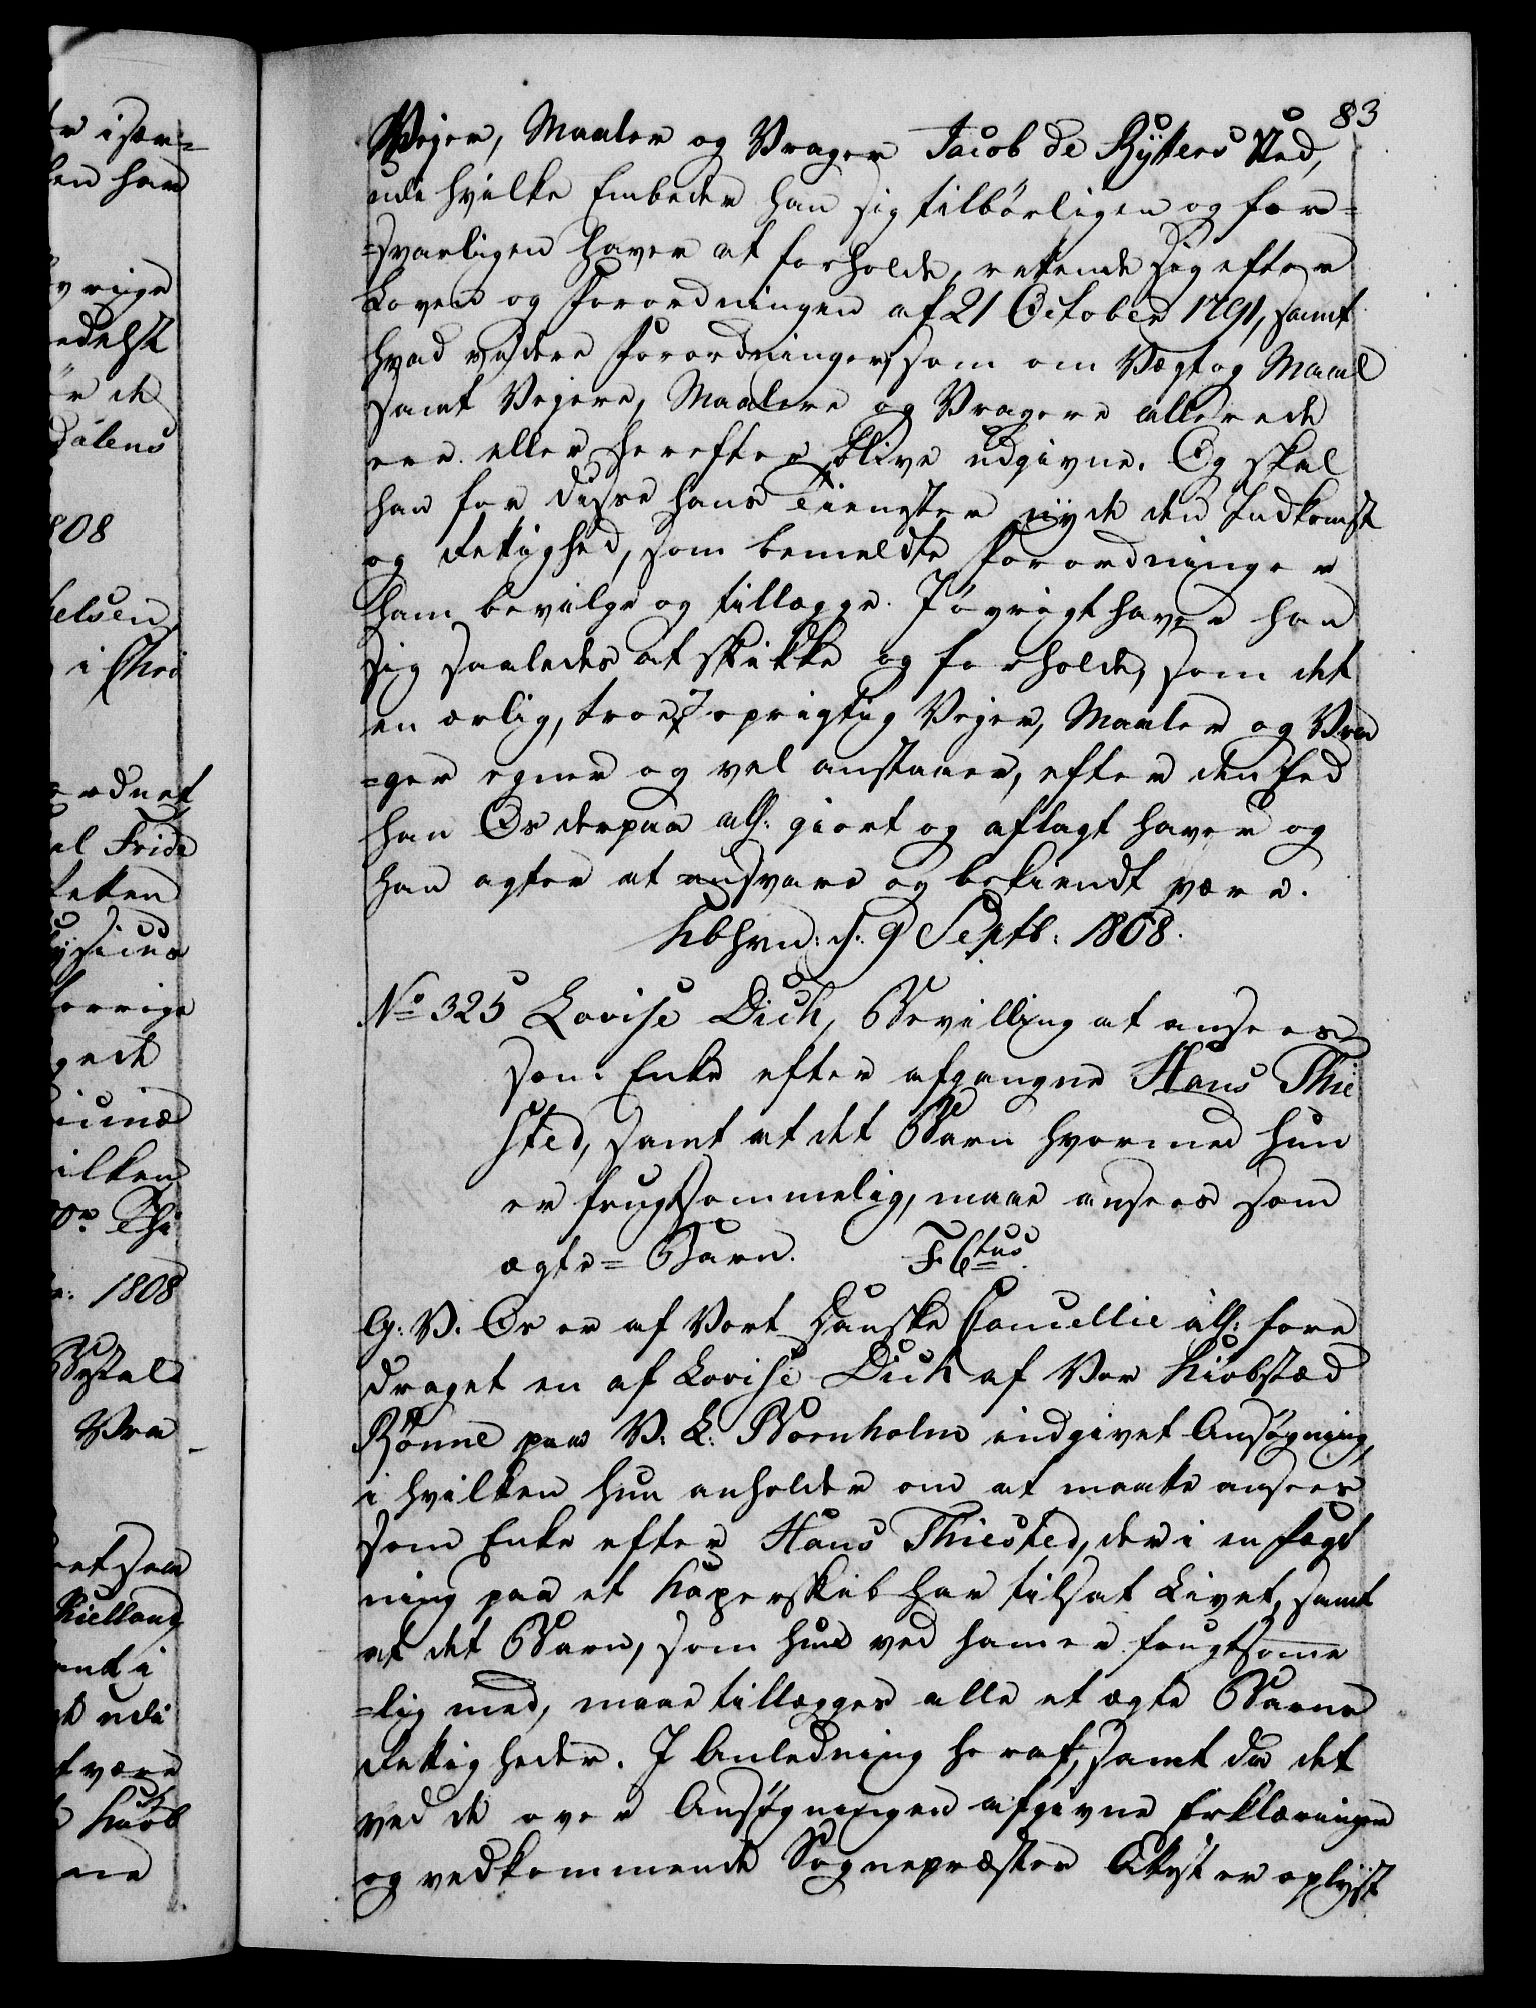 83
Vejer, Maaler og Vrager Jacob de Rÿtters Sted,
udi hvilke Embeder han sig tilbörligen og for=
=svarligen haver at forholde, rettende sig efter
Loven og Forordningen af 21 October 1791, samt
hvad videre Forordninger, som om Vægt og Maal
samt Vejere, Maalere og Vragere allerede
ere eller herefter blive udgivne. Og skal
han for disse hans Tienester nyde den Indkomst
og Rettighed, som bemeldte Forordninger
ham bevilge og tillægge. I övrigt haver han
sig saaledes at skikke og forholde, som det
en ærlig, troe og oprigtig Vejer, Maaler og Vra
=ger egner og vel anstaaer, efter den Eed
han Os derpaa all: giort og aflagt haver og
han agter at ansvare og bekiendt være.
Kbhvn: d: 9 Septb: 1808.
No 325 Lovise Dich, Bevilling at ansees
som Enke efter afgangne Hans Thie
sted, samt at det Barn hvormed hun
er frugtsommelig, maae ansees som
ægte= Barn. F 6tus
G: V. Os er af Vort Danske Cancellie all: fore
draget en af Lovise Dich af Vor Kiöbstæd
Rönne paa V: L: Bornholm indgivet Ansøgning,
i hvilken hun anholder om at maatte ansees
som Enke efter Hans Thiested, der i en Fegt
ning paa et Kaperskib har tilsat Livet, samt
at det Barn, som hun ved ham er frugtsomme
=lig med, maae tillægges alle et ægte Barns
Rettigheder. I Anledning heraf, samt da det
ved de over Ansøgningen afgivne Erklæringer
og vedkommende Sognepræstes Attest er oplyst